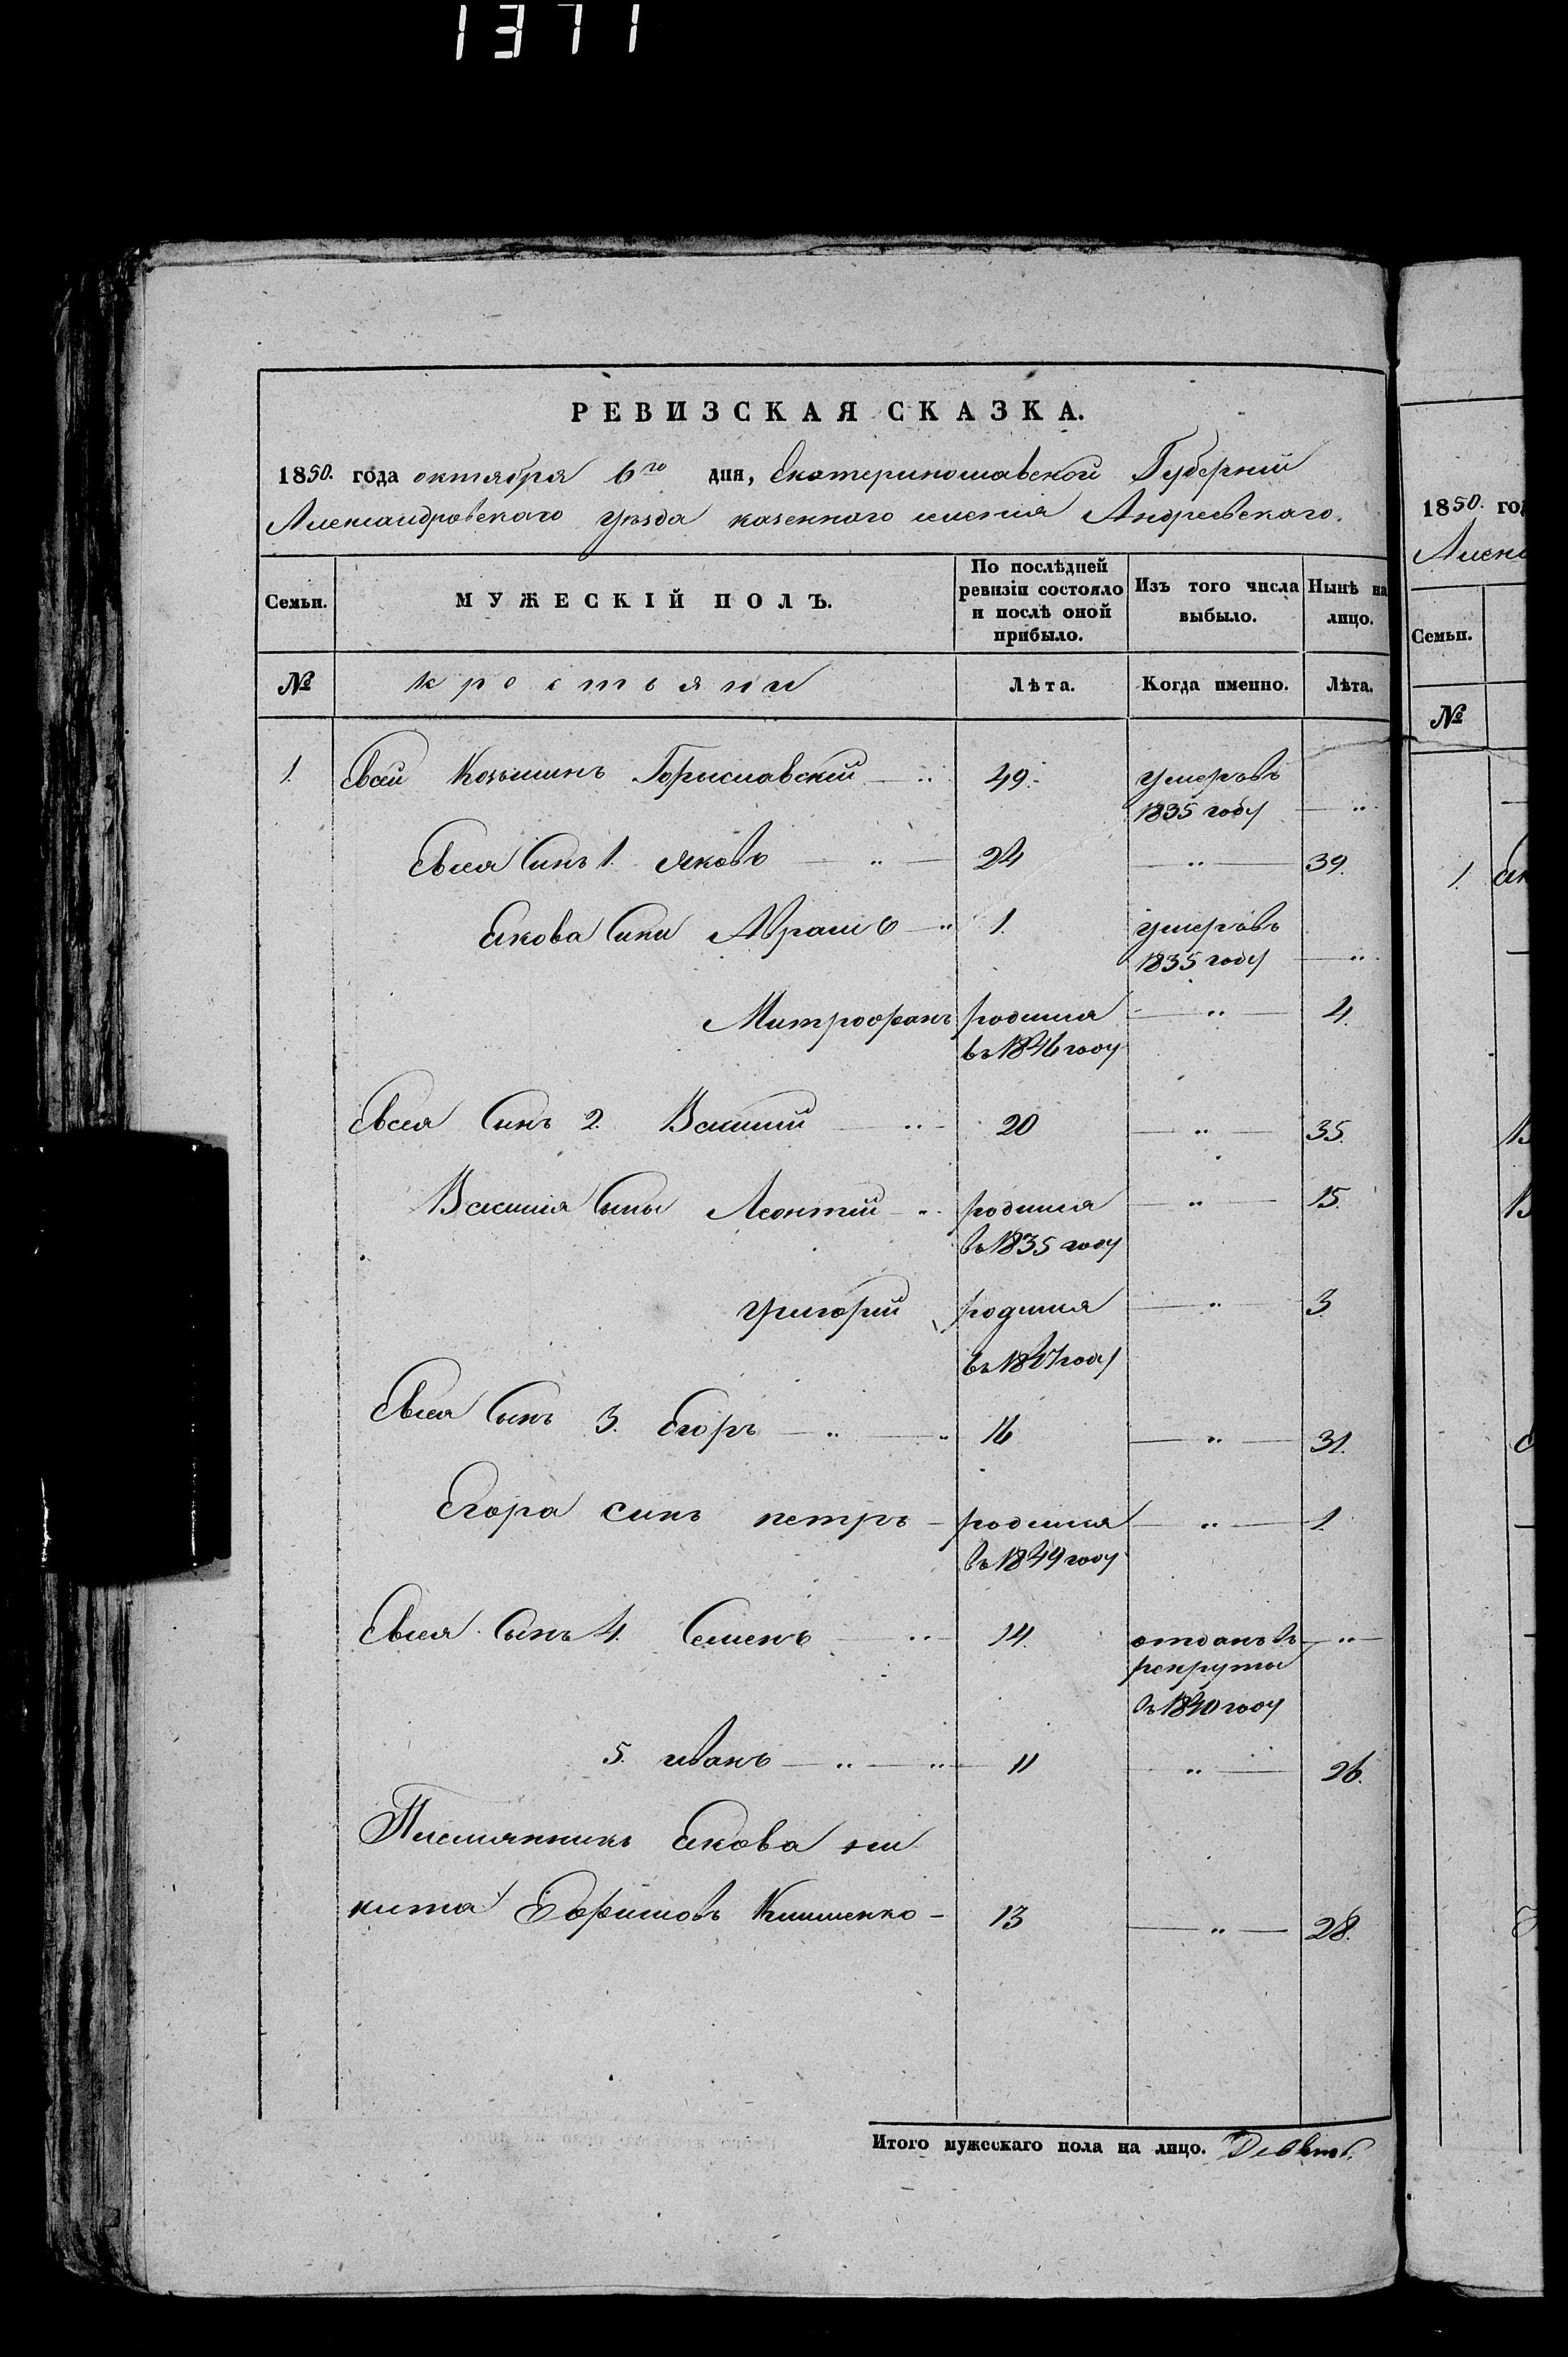 1371
РЕВИЗСКАЯ СКАЗКА.
1850. года октября 6го дня, Екатеринославской Губерній
Александровскаго уѣзда казеннаго селенія Андреевскаго.
Семьи. МУЖЕСКІЙ ПОЛЪ. По послѣдней ревизіи состояло и послѣ оной прибыло. Изъ того числа выбыло. Нынѣ на лицо.
№ крестьяни Лѣта. Когда именно. Лѣта.
1. Евсей Козьминъ Горыславскій — „ 49. умеръ въ
1835 году — „
Евсея Синъ 1. Яковъ — „ — 24 — „ — 39.
Якова Сини Абрамъ — „ 1. умеръ въ
1835 году — „
Митрофанъ родился — „ — 4.
въ 1846 году
Евсея Синъ 2. Василий — „ — 20 — „ — 35.
Василия Сыны Леонтий — „ родился — „ — 15.
въ 1835 году
Григорий родился — „ — 3
въ 1847 году
Евсея Сынъ 3. Егоръ — „ — „ 16 — „ — 31.
Егора синъ петръ — родился — „ — 1.
въ 1849 году
Евсея Сынъ 4. Семенъ — „ — 14. отданъ въ — „ —
рекруты
въ 1840 году
5. иванъ — „ — „ — 11 — „ — 26.
Племянникъ Якова ни
кита Ефимовъ Клименко — 13 — „ — 28.
Итого мужескаго пола на лицо. Девять.
1850. год
Алекс
Семьи.
№
1.